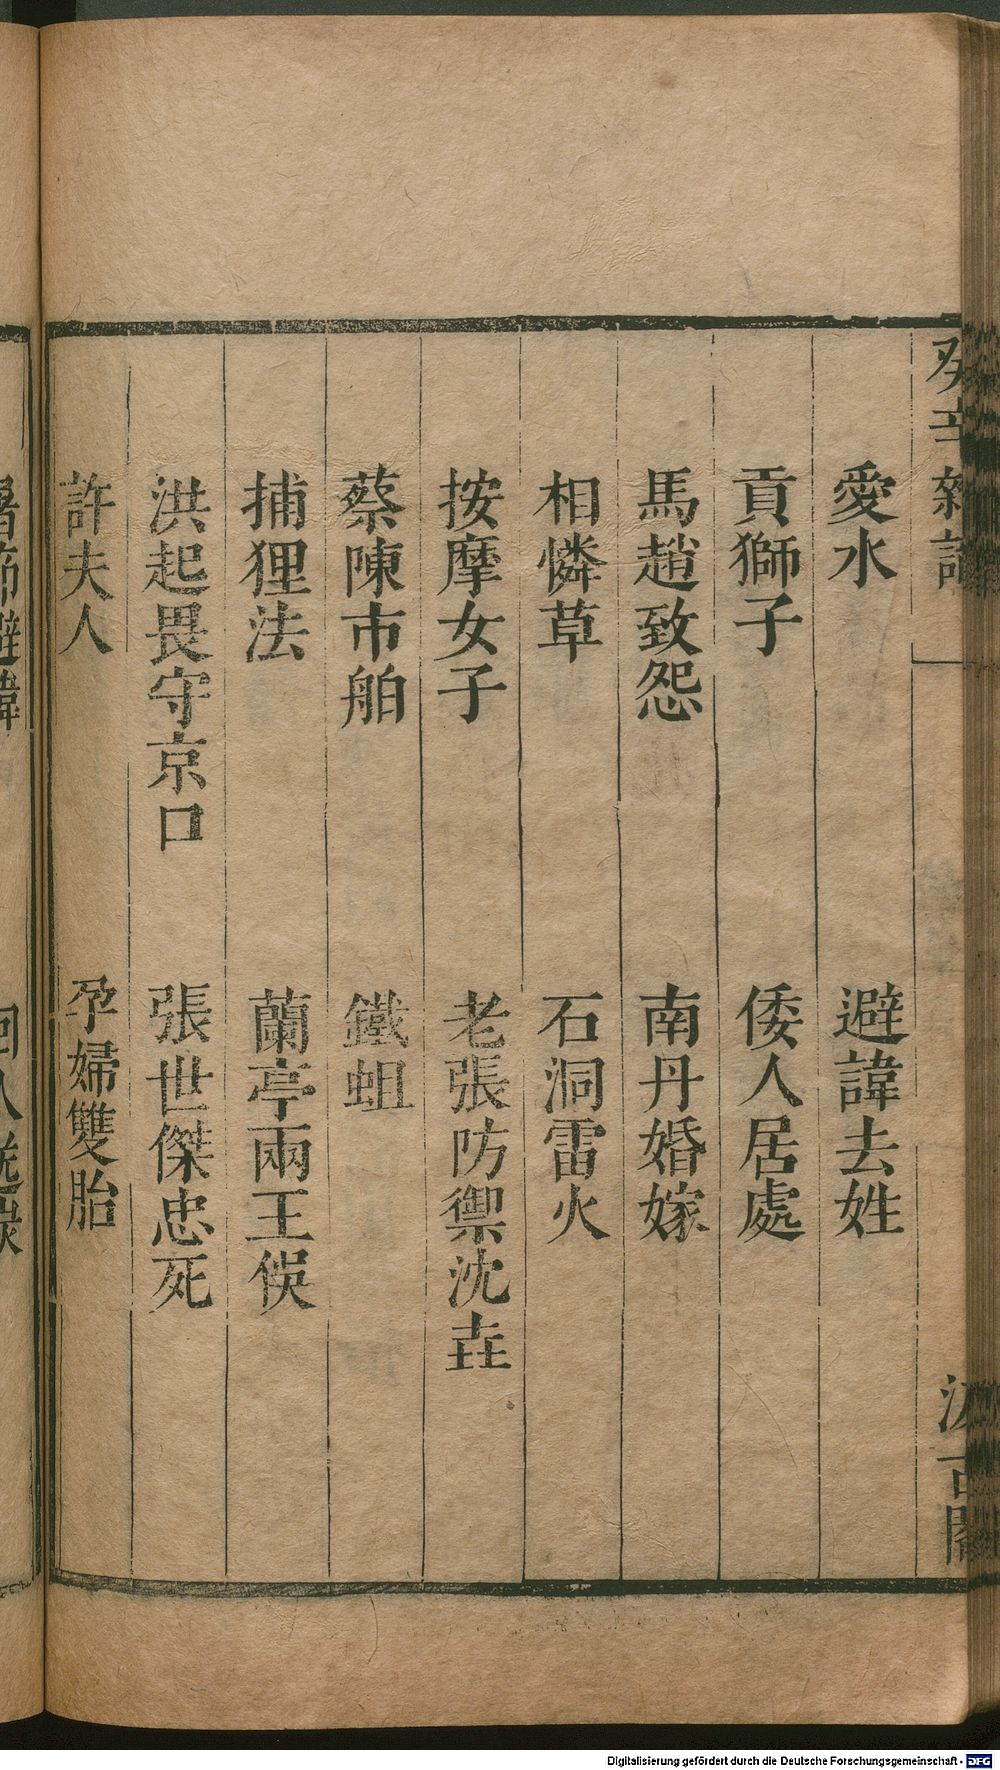 癸辛雜識
汲古閣
愛水　避諱去姓
貢獅子　倭人居處
馬趙致怨　南丹婚嫁
相憐草　石洞雷火
按摩女子　老張防禦沈垚
蔡陳市舶　鐵蛆
捕狸法　蘭亭兩王俁
洪起畏守京口　張世傑忠死
許夫人　孕婦雙胎
Digitalisierung gefördert durch die Deutsche Forschungsgemeinschaft - DFG